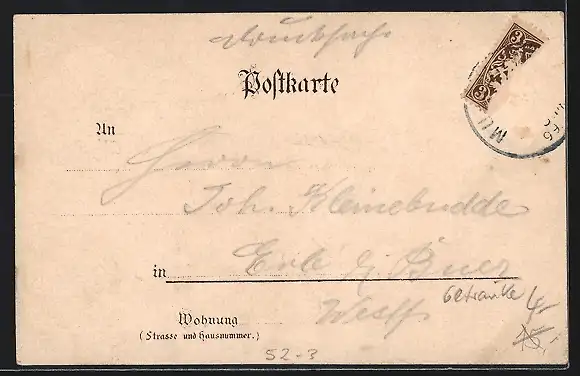 Drucksache
3
3
Postkarte
MÜ
An
Herrn
Joh. Kleinebudde
in Erle b/ Buer
Westf.
Getränke 4,-
Wohnung
(Strasse und Hausnummer.)
52-3